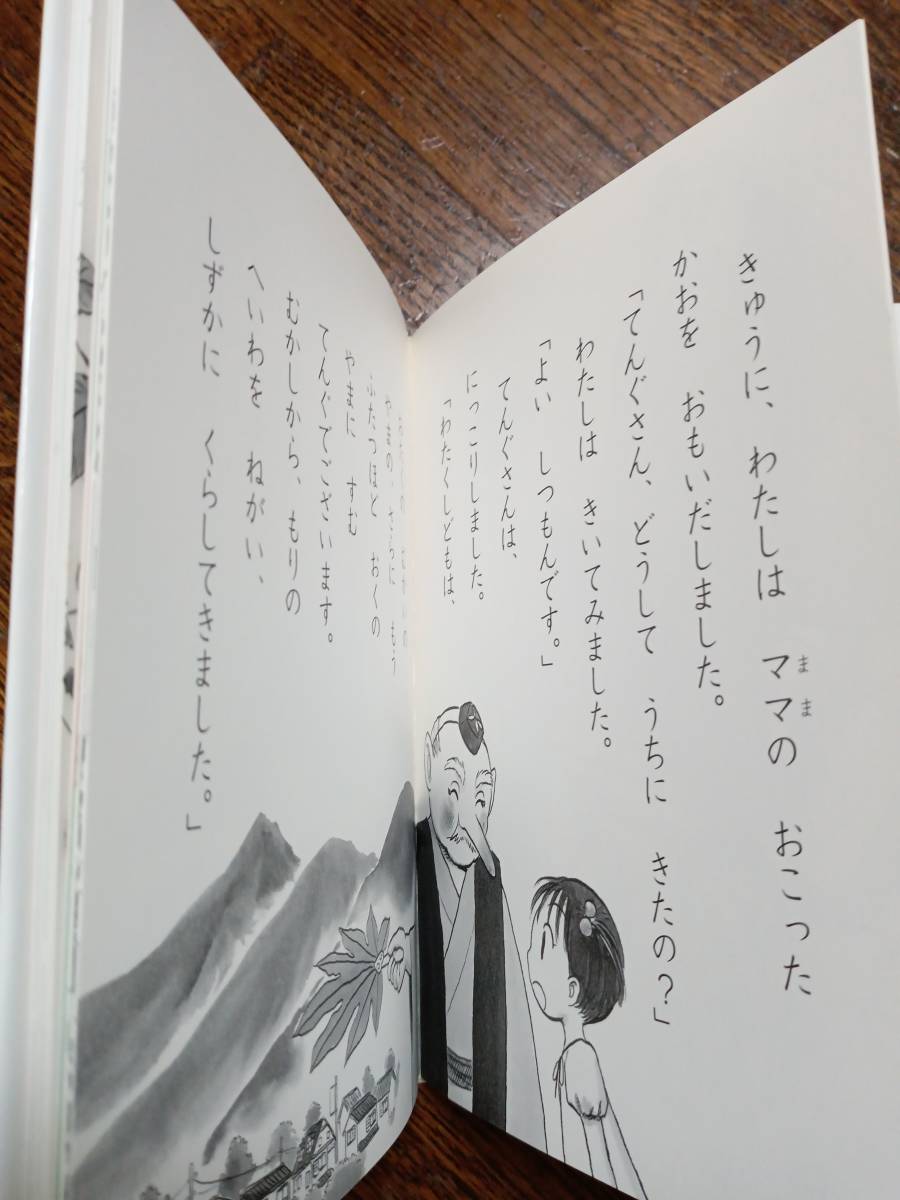 きゅうに、わたしは ママの おこった
まま
かおを おもいだしました。
「てんぐさん、どうして うちに きたの？」
わたしは きいてみました。
「よい しつもんです。」
てんぐさんは、
にっこりしました。
「わたくしどもは、
やまの、さらに もう
ふたつほど おくの
やまに すむ
てんぐでございます。
むかしから、もりの
へいわを ねがい、
しずかに くらしてきました。」